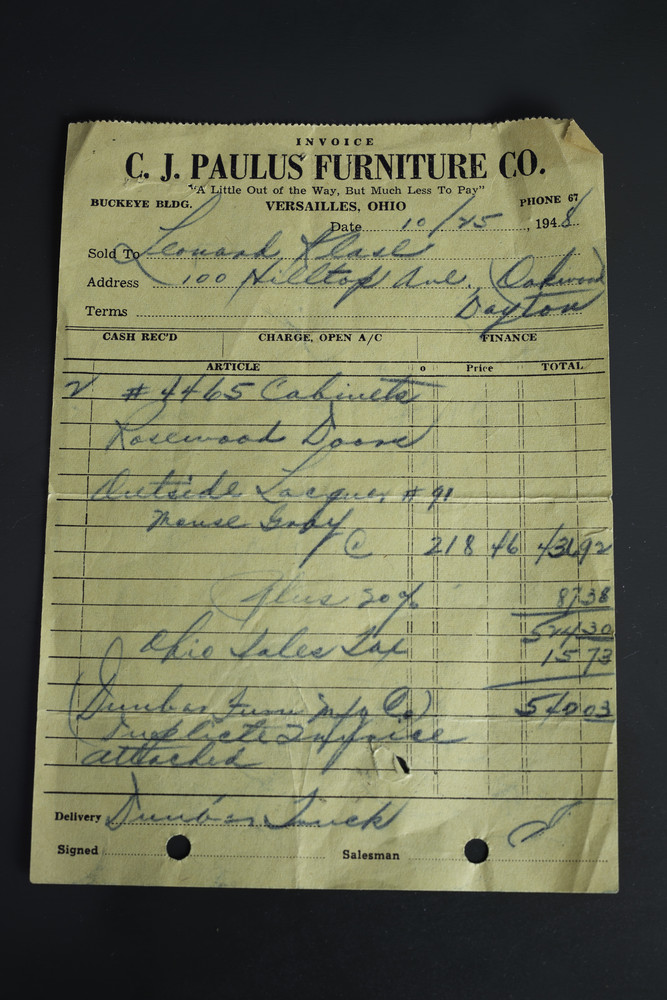 INVOICE
C. J. PAULUS FURNITURE CO.
"A Little Out of the Way, But Much Less To Pay"
BUCKEYE BLDG. VERSAILLES, OHIO PHONE 67
Date 10/25, 1948
Sold To Leonard Klase
Address 100 Hilltop Ave., (Oakwood)
Terms Dayton
CASH REC'D CHARGE, OPEN A/C FINANCE
ARTICLE o Price TOTAL
2 #4465 Cabinets
Rosewood Doors
Outside Lacquer #91
Mouse Gray
@ 218 46 43692
Plus 20% 8738
52430
Ohio Sales Tax 1573
(Dunbar Furn Mfg Co) 54003
Invoice
attached
Delivery Dunbar Truck
Signed Salesman